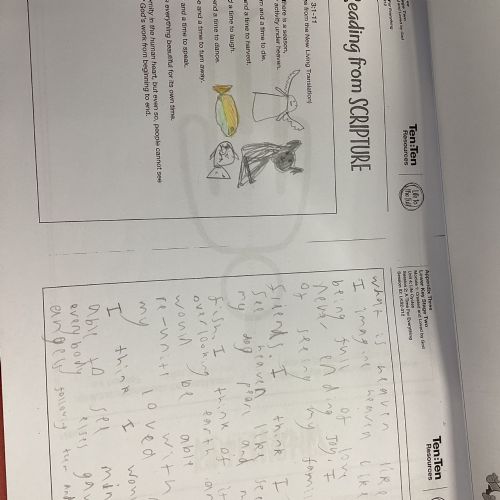 Ten:Ten
Resources
Life to the Full
Reading from SCRIPTURE
3:1-11
es from the New Living Translation)
there is a season,
activity under heaven.
rn and a time to die.
and a time to harvest.
d a time to laugh.
and a time to dance.
e and a time to turn away.
and a time to speak.
e everything beautiful for its own time.
ernity in the human heart, but even so, people cannot see
God's work from beginning to end.
Appendix Three
Lower Key Stage Two
Ten:Ten
Resources
what is heaven like
I imagine heaven like
being full of love
never ending joy. I
of seeing my fami
friends. I think I
see heaven like see
my dog pearl and
fish. I think of it
overlooking earth an
would be able
re-unite with
my loved
I think I
able to see min
everybody elses
angels following them and